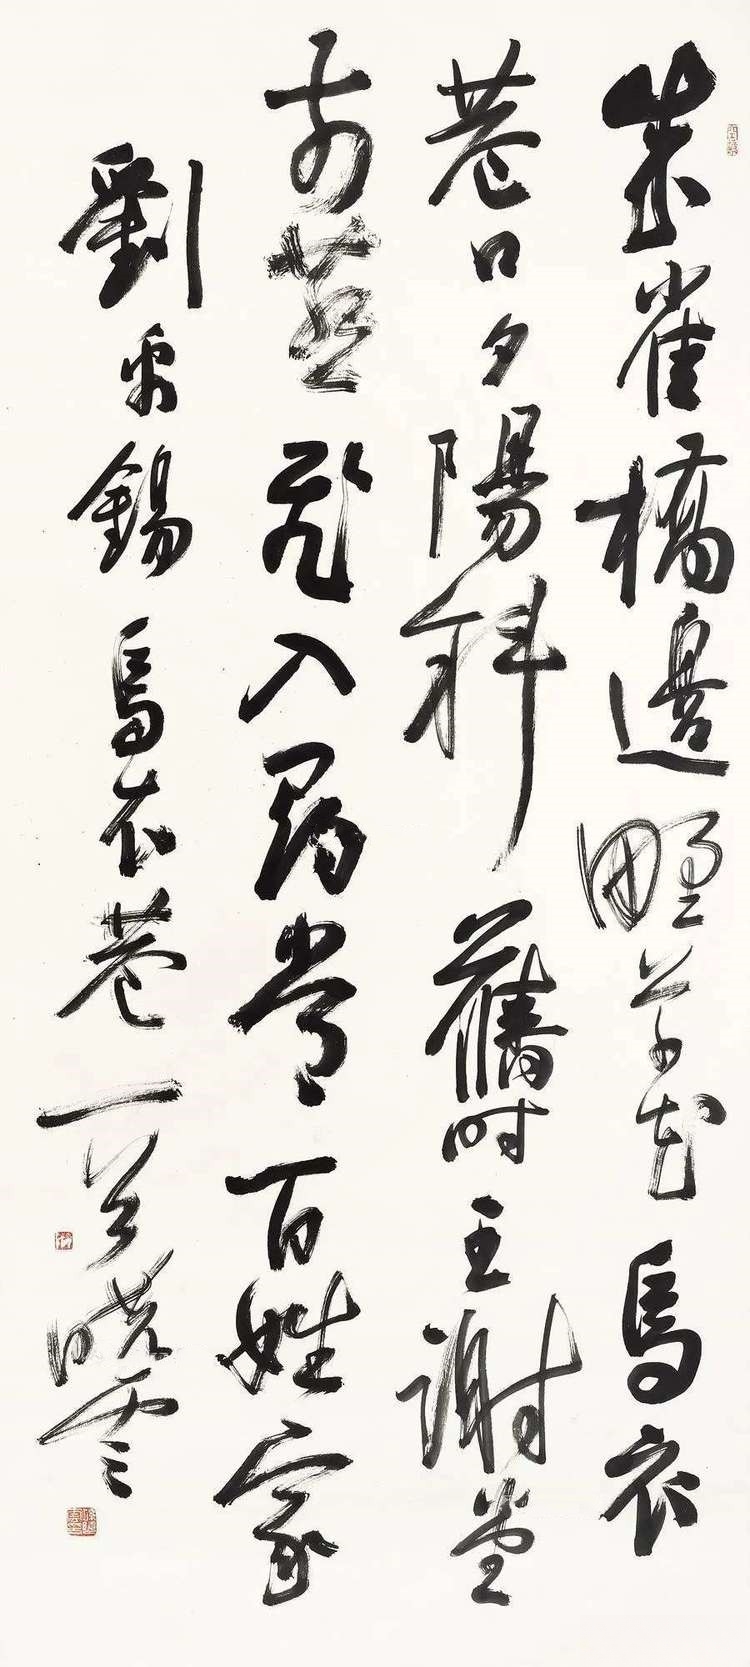 朱雀橋邊野草花烏衣
巷口夕陽斜舊時王謝堂
前燕飛入尋常百姓家
劉禹錫烏衣巷一首曉雲